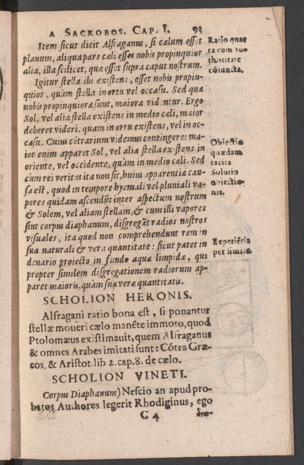 A SACROBOS. CAP. I. 91
Item sicut dicit Alfraganus, si calum esset
planum, aliqua pars cali esset nobis propinquior
alia, illa scilicet, quæ esset supra caput nostrum.
Igitur stella ibi existens, esset nobis propin-
quior, quàm stella in ortu vel occasu. Sed quæ
nobis propinquiora sunt, maiora videntur. Ergo
Sol, vel alia stella existens in medio cali, maior
deberet videri, quam in ortu existens, vel in oc-
casu. Cuius cōtrarium videmus contingere: ma-
ior enim apparet Sol, vel alia stella existens in
oriente, vel occidente, quàm in medio cali. Sed
cum rei veritas ita non sit, huius apparentiæ cau-
sa est, quod in tempore hyemali vel pluviali va-
pores quidam ascendūt inter aspectum nostrum
& Solem, vel aliam stellam, & cum illi vapores
sint corpus diaphanum, disgregāt radios nostros
visuales, ita quod non comprehendunt rem in
sua naturali & vera quantitate: sicut patet in
denario proiecto in fundo aquæ limpidæ, qui
propter similem disgregationem radiorum ap-
paret maioris, quàm suæ veræ quantitatis.
Ratio quæ
ta cum au-
thoritate
coiuncta.
Obiectio
quædam
tacita
Solutio
obiectio-
nis.
Experiētia
per simile.
SCHOLION HERONIS.
Alfragani ratio bona est, si ponantur
stellæ moueri cælo manēte immoto, quod
Ptolomæus existimauit, quem Alfraganus
& omnes Arabes imitati sunt: Cōtra Græ-
cos, & Aristot. lib 2. cap. 8. de cælo.
SCHOLION VINETI.
Corpus Diaphanum) Nescio an apud pro-
batos Authores legerit Rhodiginus, ego
G 4